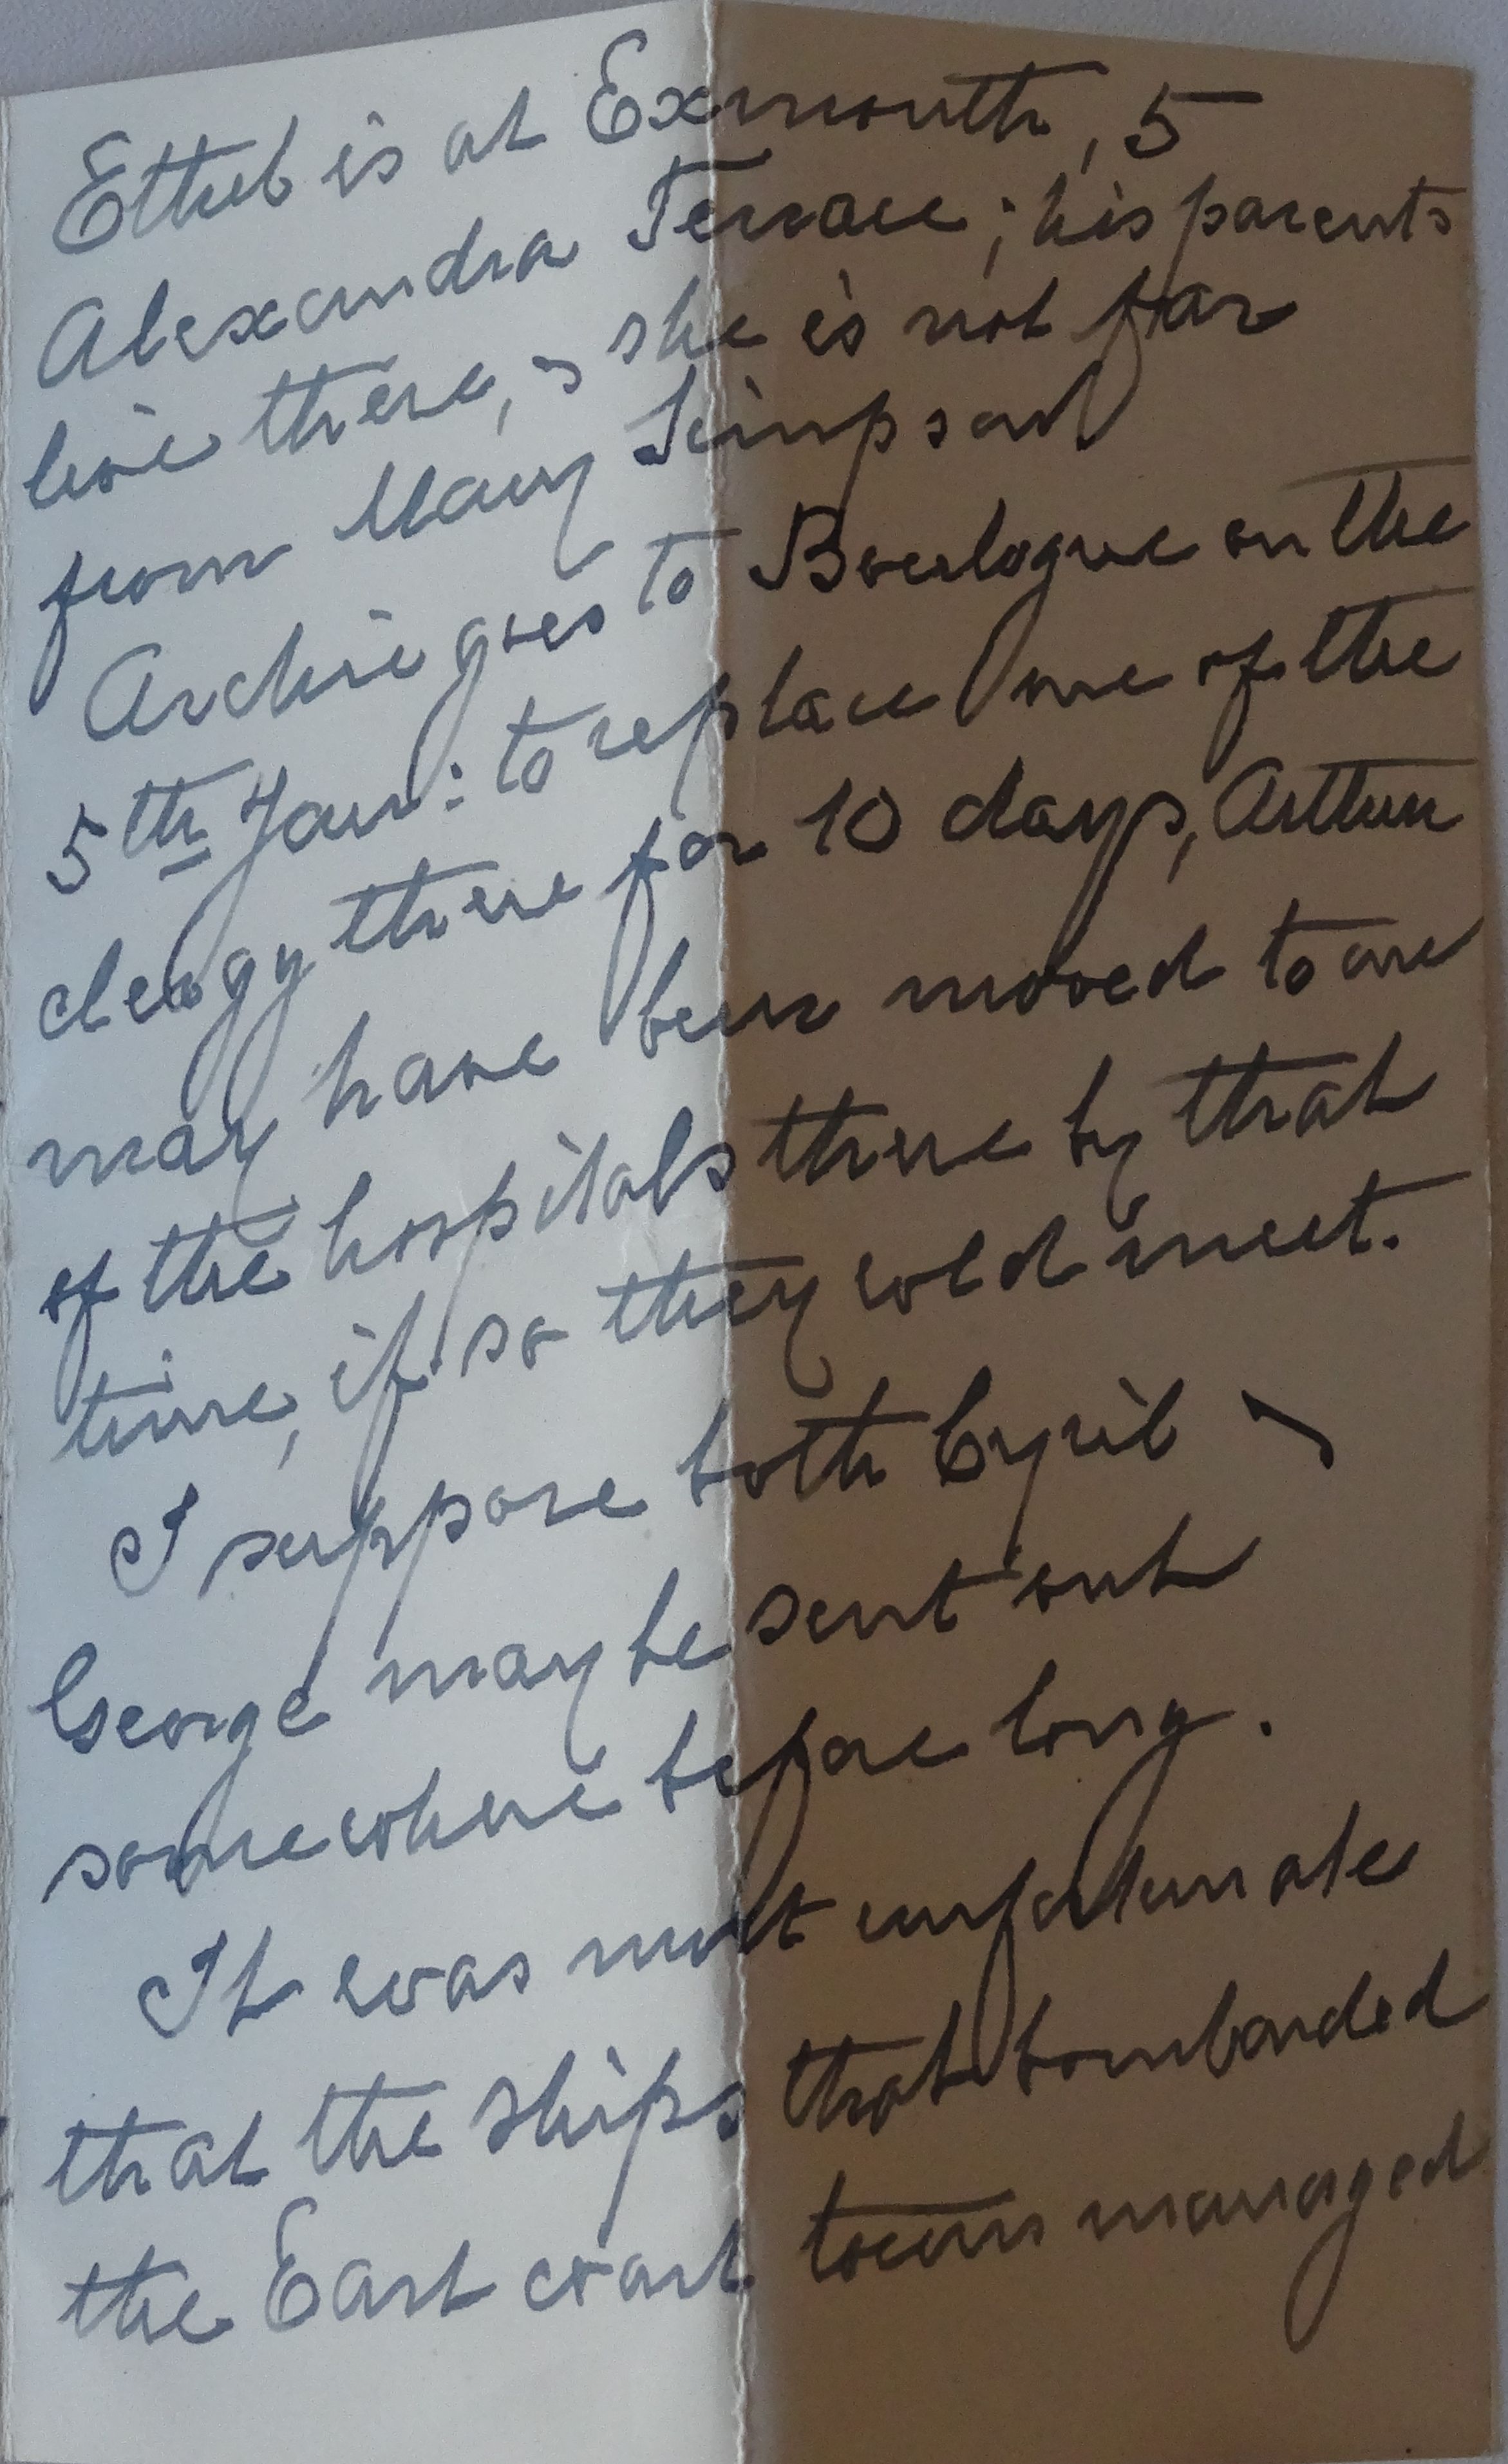 Ethel is at Exmouth, 5
Alexandra Terrace; his parents
live there, & she is not far
from Mary Simpson
Archie goes to Boulogne on the
5th Jan: to replace one of the
clergy there for 10 days, Arthur
may have been moved to one
of the hospitals there by that
time, if so they cold meet.
I suppose both Cyril &
George may be sent out
somewhere before long.
It was most unfortunate
that the ships that bombarded
the East coast towns managed